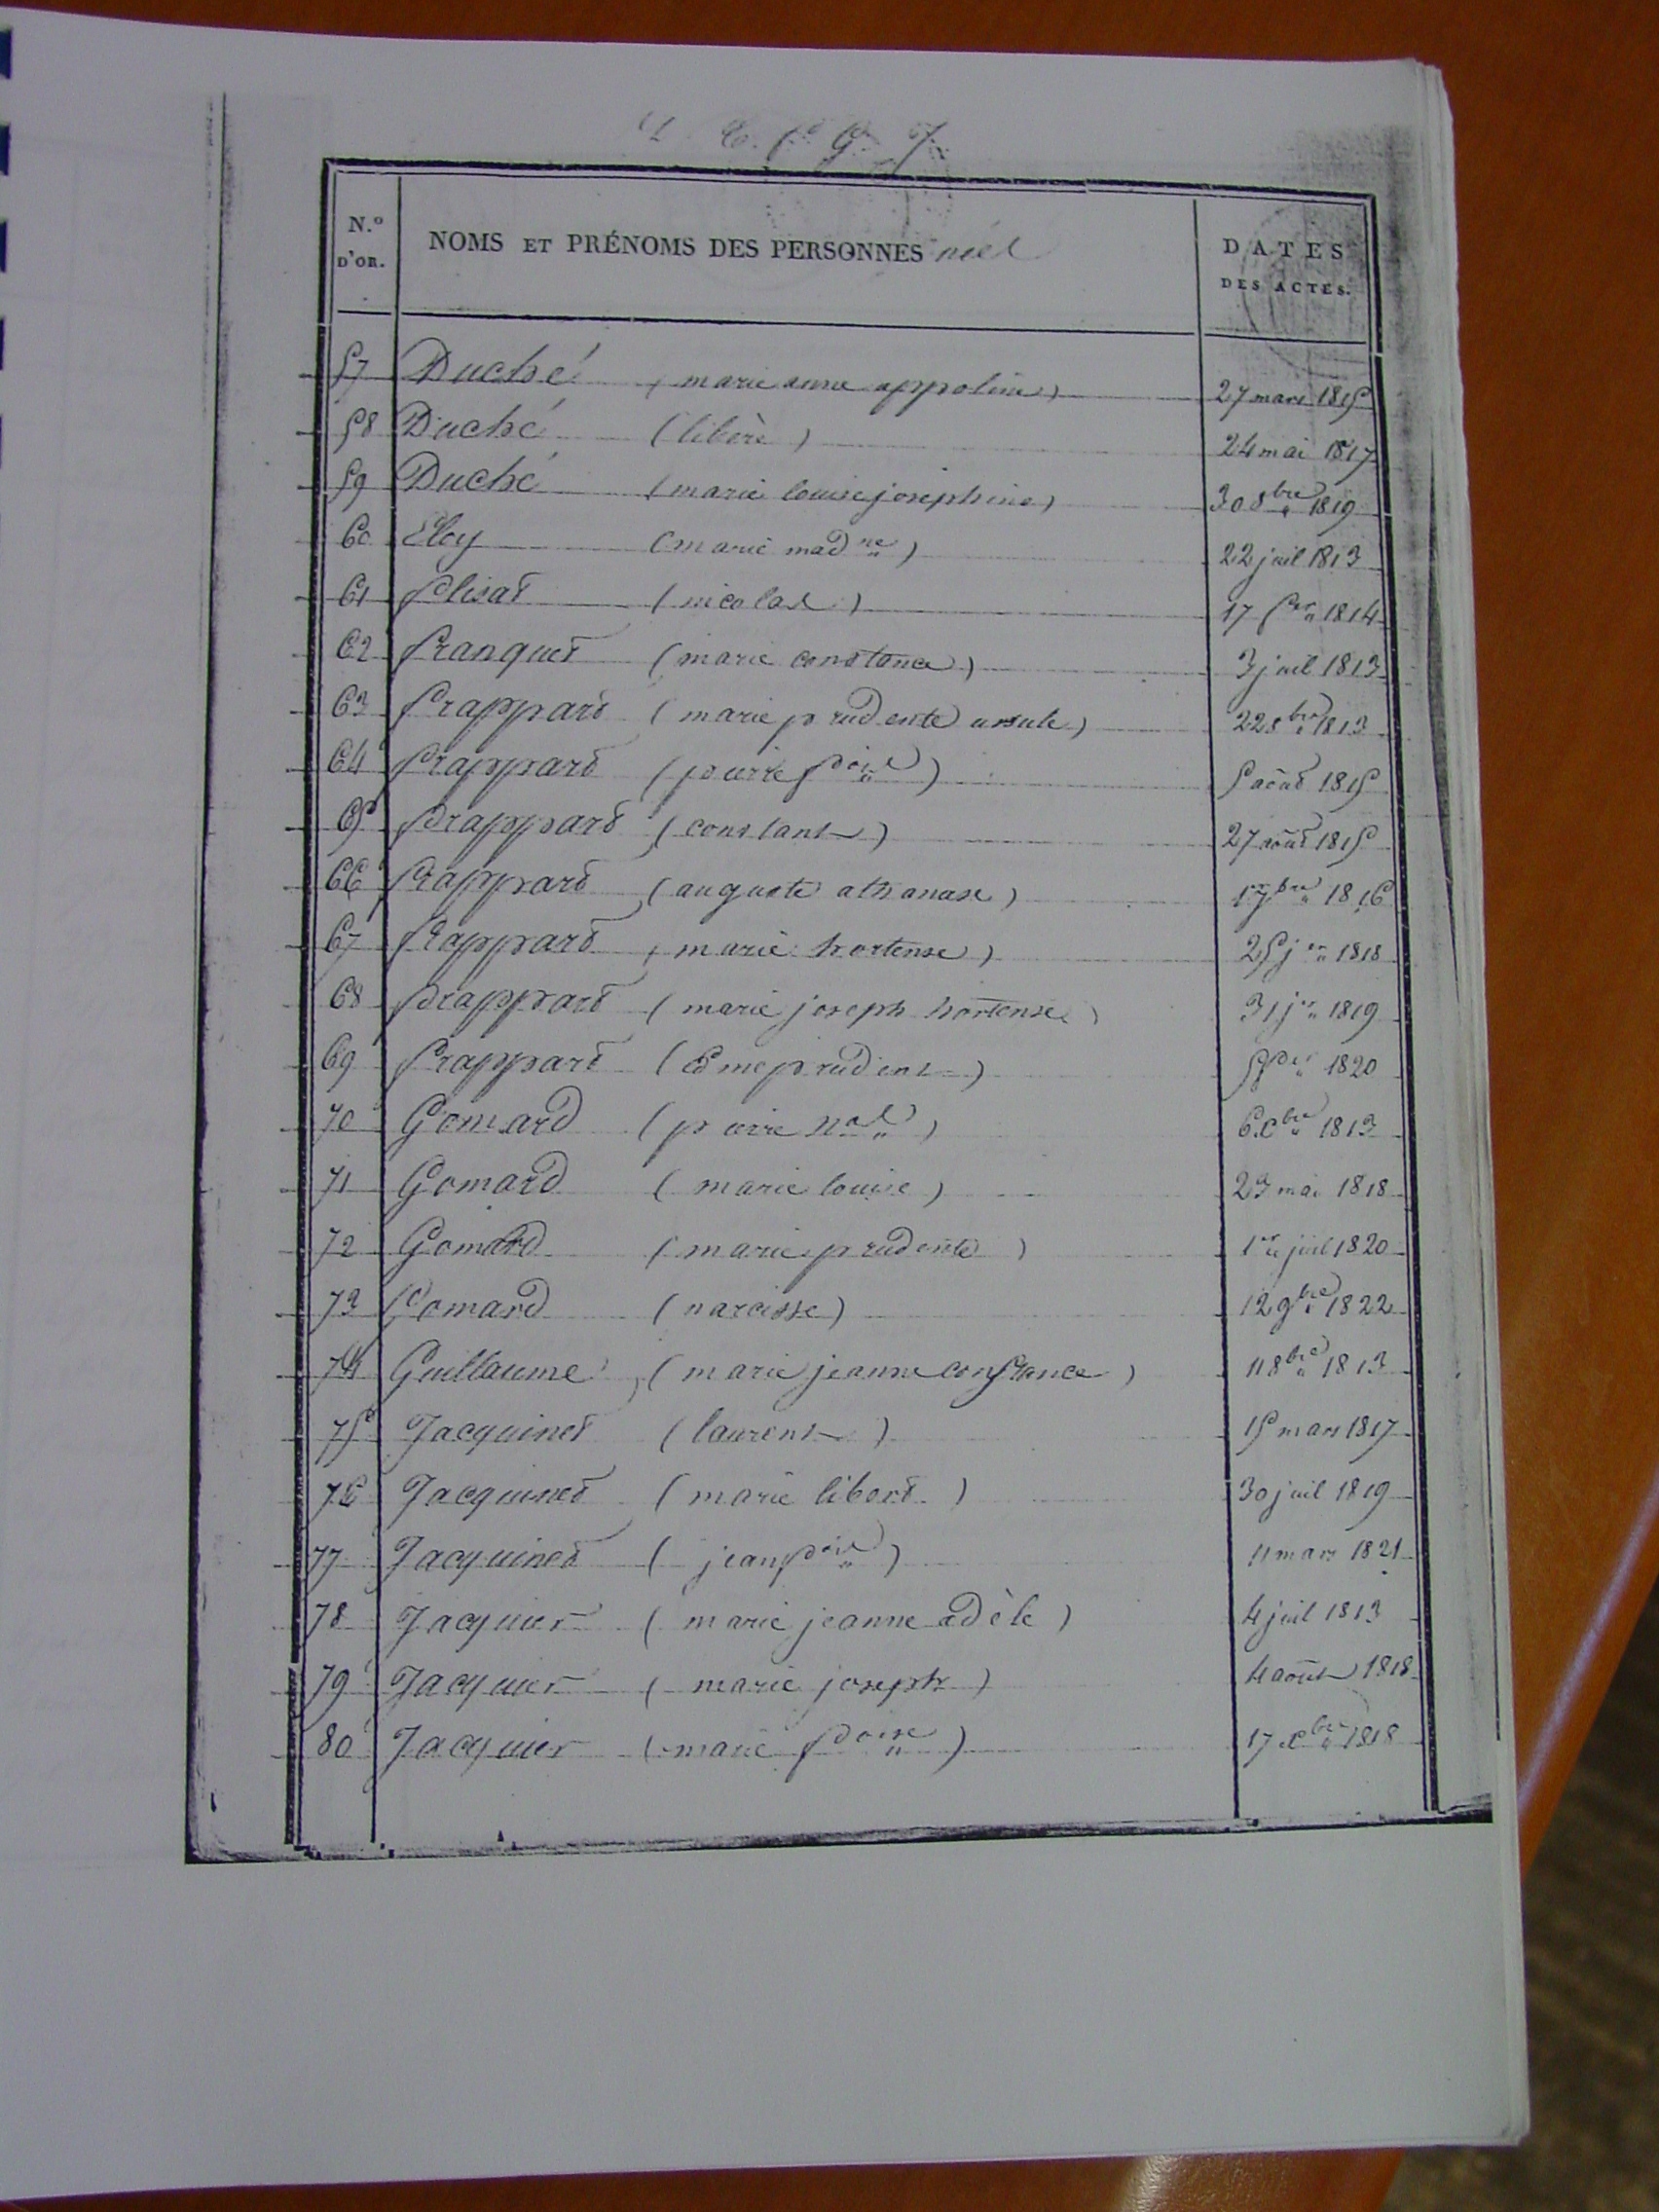 E. f. G. J.
N.º D'OR. NOMS ET PRÉNOMS DES PERSONNES nées DATES DES ACTES.
57 Duché (marie anne appoline) 27 mars 1815
58 Duché (libère) 24 mai 1817
59 Duché (marie louise josephine) 30 8bre 1819
60 Eloy (marie madne) 22 juil 1813
61 flisat (nicolas) 17 fer 1814
62 franquet (marie constance) 3 juil 1813
63 frappart (marie prudente ursule) 22 8bre 1813
64 frappart (pierre fois) 5 août 1815
65 frappart (constant) 27 août 1815
66 frappart (auguste athanase) 1er 7bre 1816
67 frappart (marie hortense) 25 jer 1818
68 frappart (marie joseph hortense) 31 jer 1819
69 frappart (Edme prudent) 5 fer 1820
70 Gomard (pierre nas) 6 Xbre 1813
71 Gomard (marie louise) 23 mai 1818
72 Gomard (marie prudente) 1er juil 1820
73 Gomard (narcisse) 12 9bre 1822
74 Guillaume (marie jeanne constance) 11 8bre 1813
75 Jacquinet (laurent) 15 mars 1817
76 Jacquinet (marie libert) 30 juil 1819
77 Jacquinet (jean fois) 11 mars 1821
78 Jacquier (marie jeanne adèle) 4 juil 1813
79 Jacquier (marie joseph) 4 août 1818
80 Jacquier (marie foise) 17 Xbre 1818